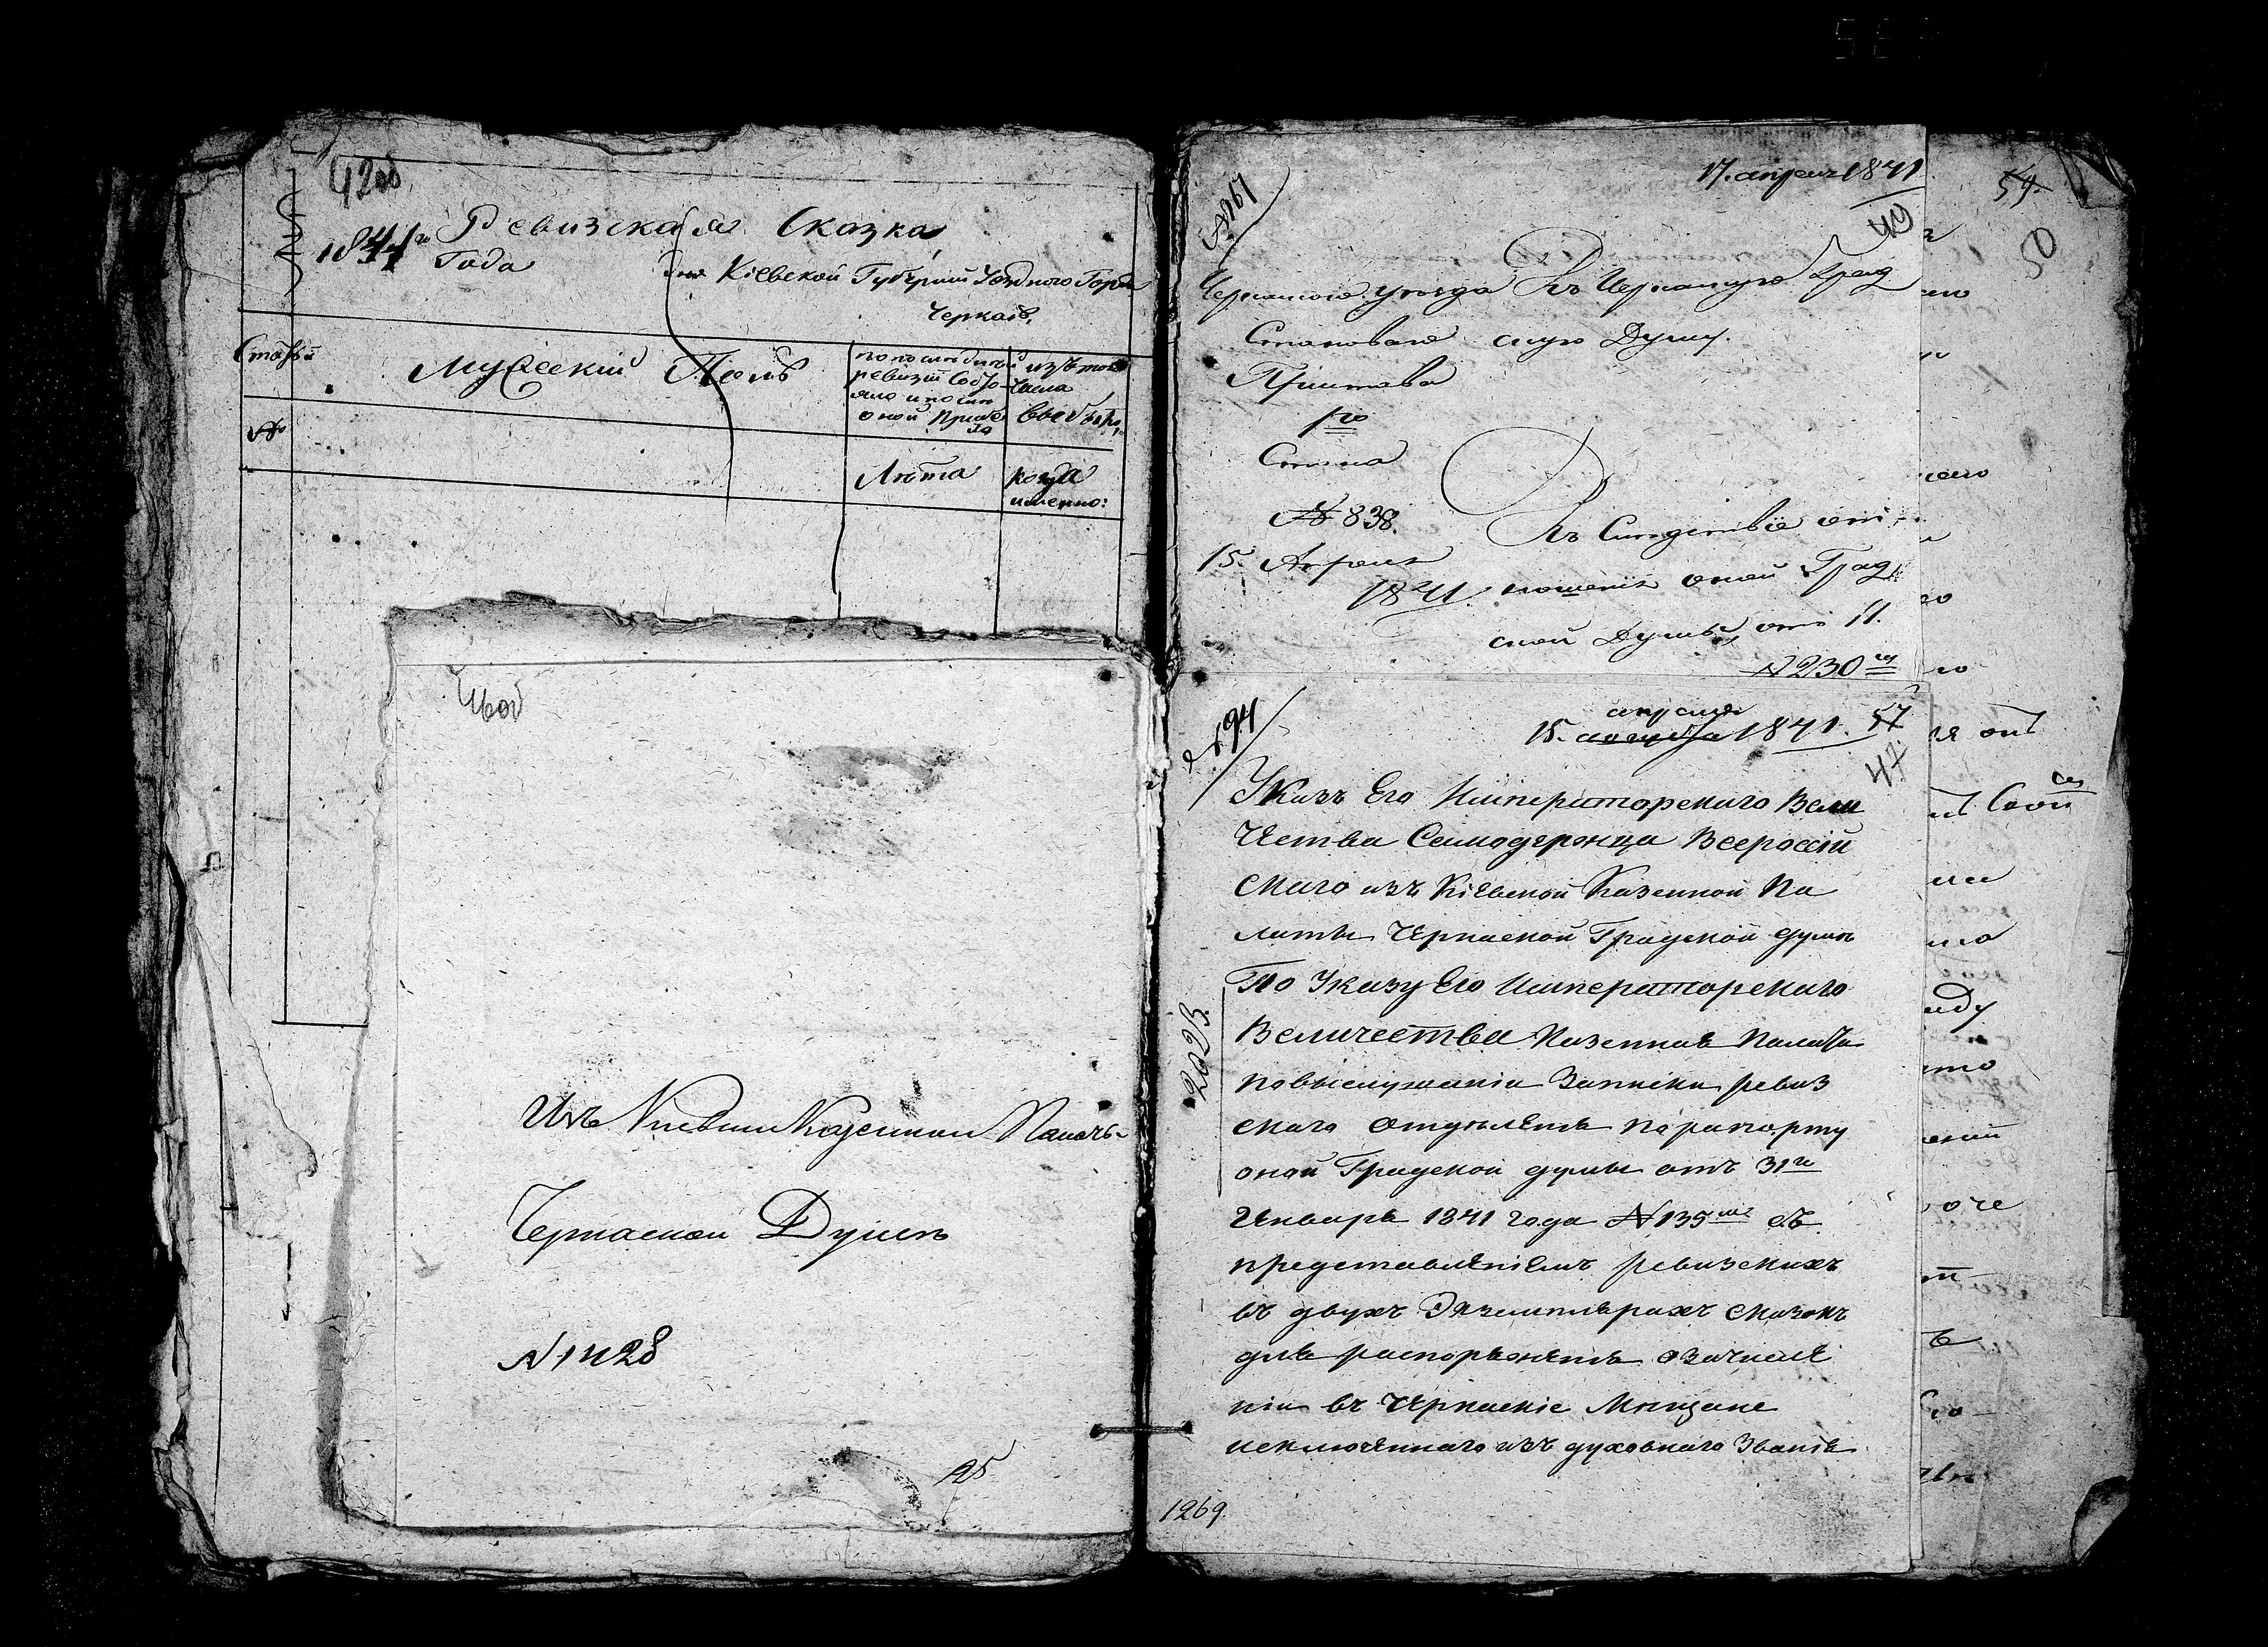 42об
Ревизская Сказка
1841го Года
дня Кіевской Губерніи Уезднаго Горда
Черкасъ,
Статьи
Мужескій Полъ
по последней
ревизіи состо
яло и после
оной прибы
ло
изъ того
числа
выбыло,
№
Лѣта
когда
именно:
46об
Изъ Кіевской Казенной Палаты
Черкаской Думѣ
N 1428
25
17. апреля 1841
№ 167
49
Черкаскаго уѣзда
Становаго
Пристава
1го
Стана
№ 838.
15. Апреля
1841.
Въ Черкаскую Град
скую Думу.
Въ Слѣдствіе отно
шенія оной Град
ской Думы, отъ 11.
№ 230
№ 194
апреля
15. августа 1841. 57
47
Указъ Его Императорскаго Вели
чества Самодержца Всероссій
скаго изъ Кіевской Казенной Па
латы Черкаской Градской думѣ
По Указу Его Императорскаго
Величества Казенная Палата
по выслушаніи Записки ревиз
скаго отделенія по рапорту
оной Градской думы отъ 31го
Генваря 1841 года № 135 съ
представленіемъ ревизскихъ
въ двухъ Экземплярахъ сказокъ
для распоряженія о зачисле
ніи въ Черкаскіе Мещане
исключеннаго изъ духовнаго званія
2023.
1269
54.
50